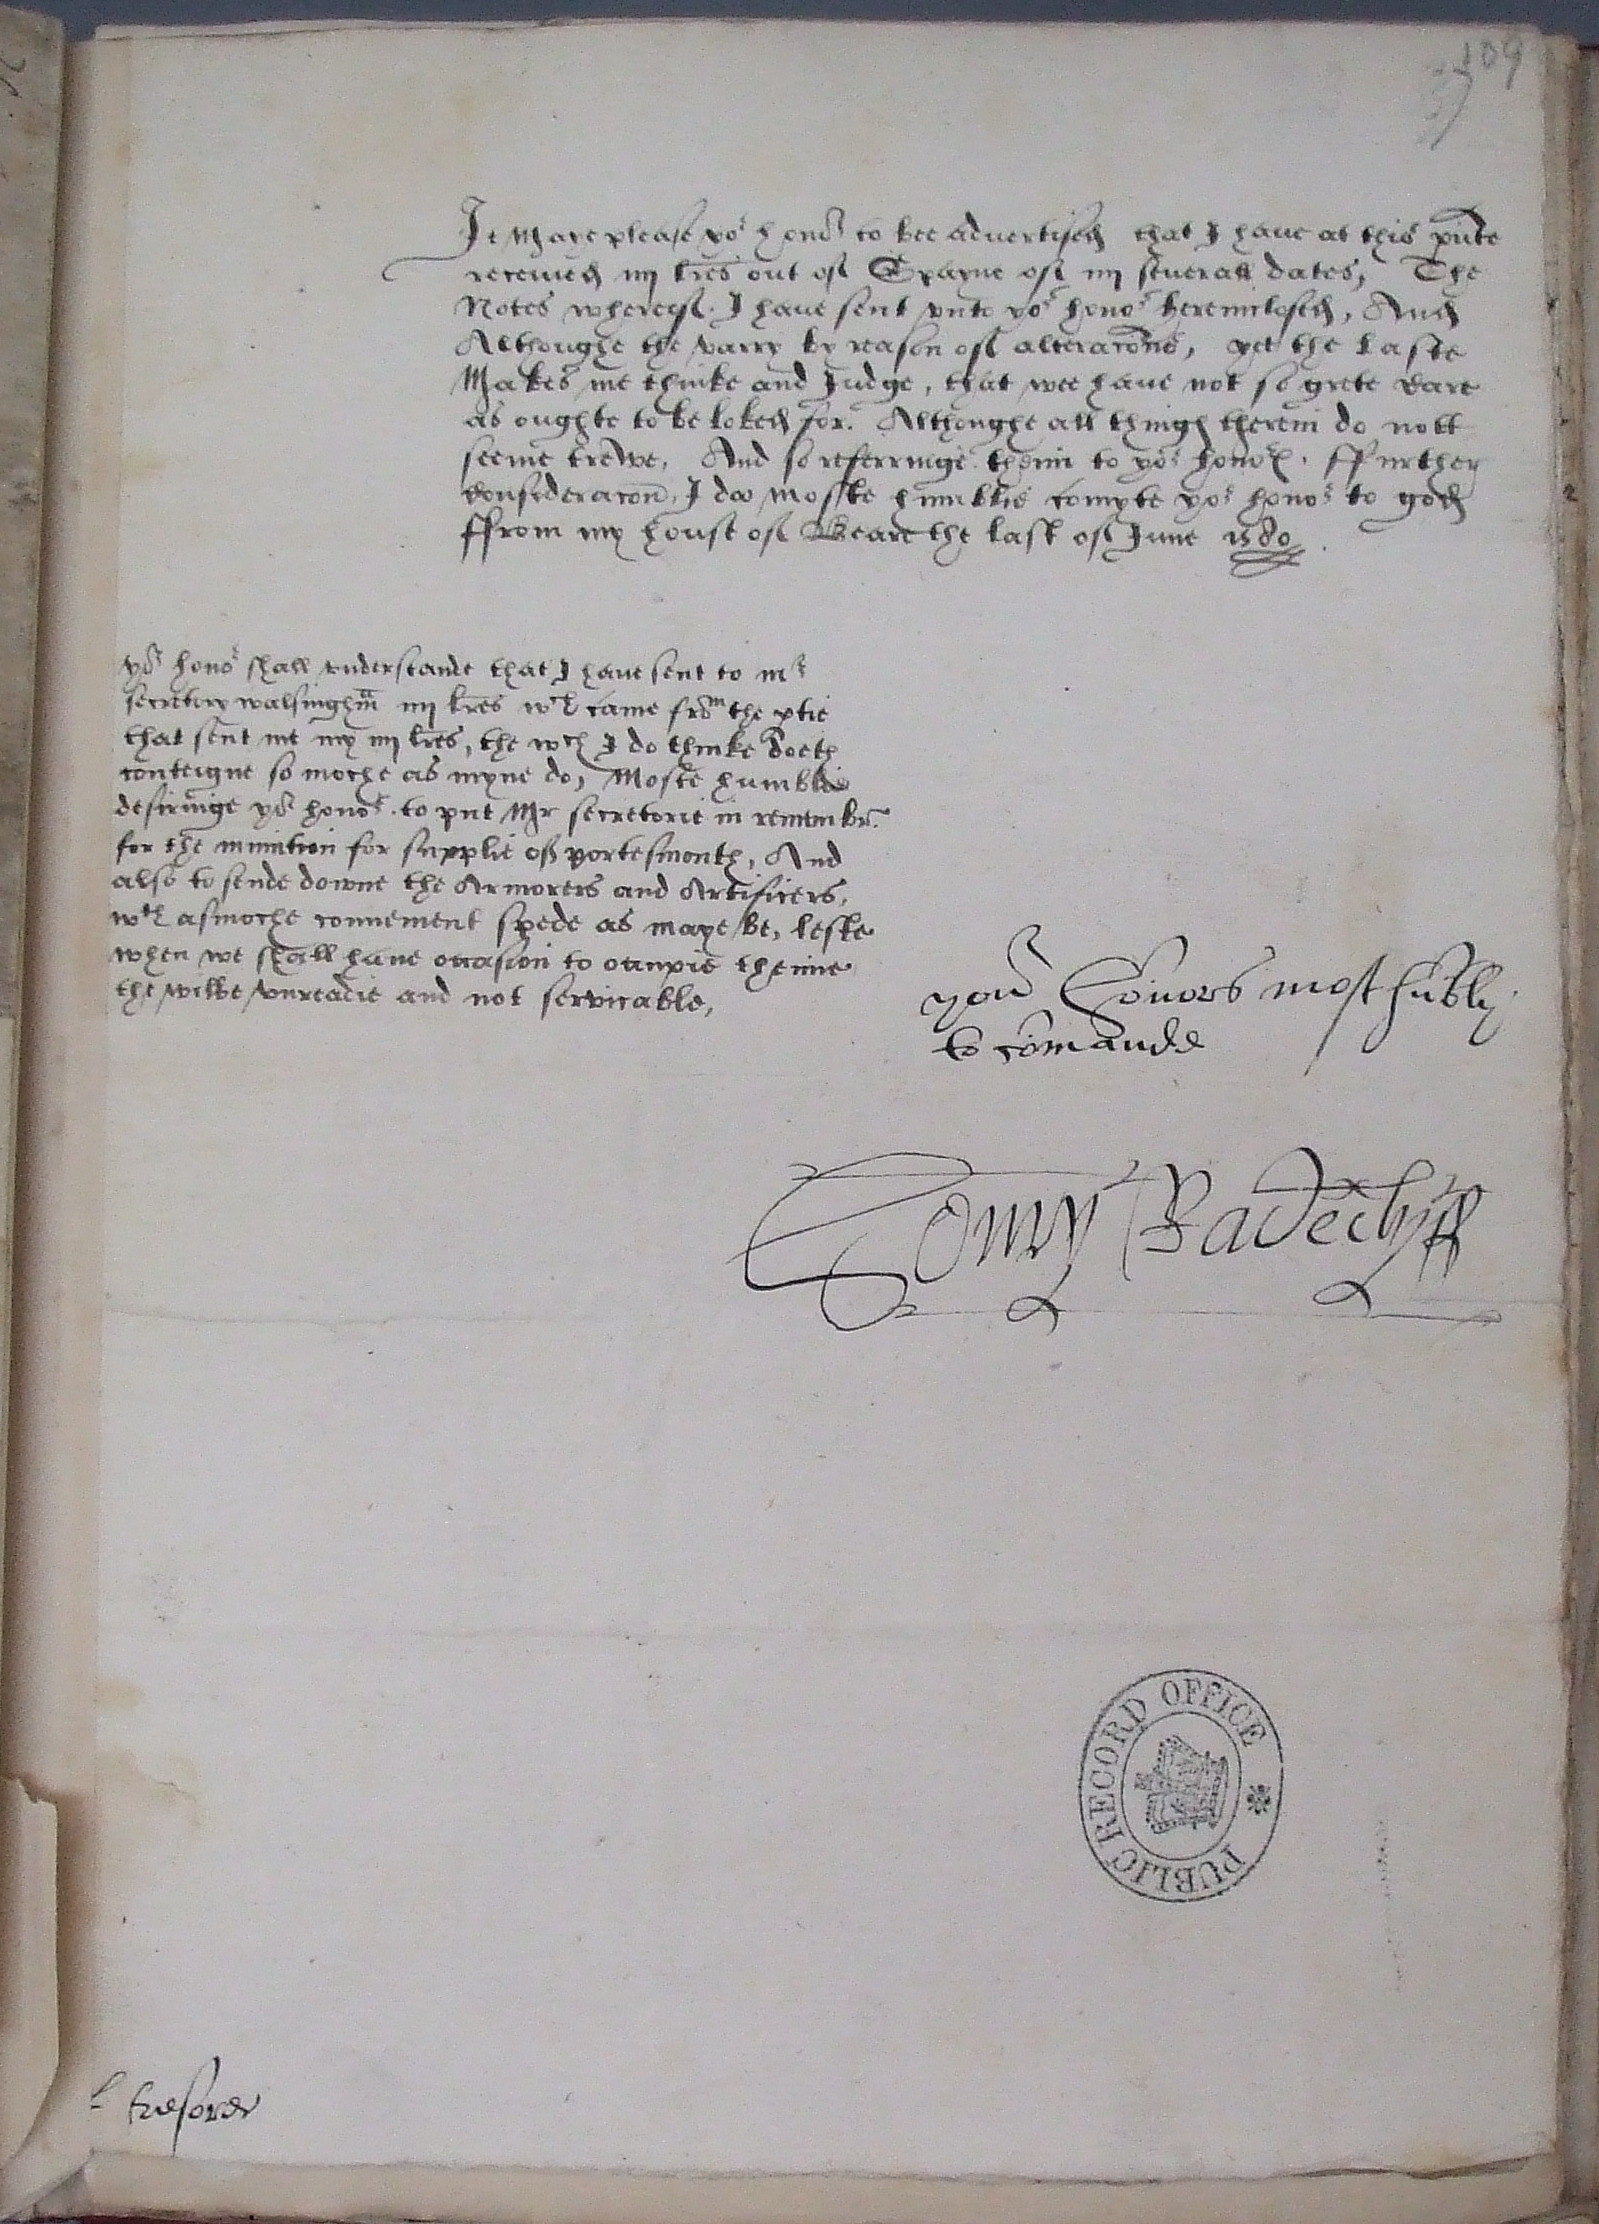 109
It Maye please yor honor to bee advertised that I have at this pnte
receiued iij lres out of Spayne of iij seuerall dates, The
Notes whereof I haue sent vnto yor honor hereinclosed, And
Althoughe the varry by reason of alteracons, yet the laste
Makes me thinke and Judge, that wee haue not so grete care
as oughte to be loked for. Althoughe all things therein do nott
seeme trewe, And so referringe theim to yor honors ffurther
consideracon, I do moste humblie comyte yor honor to god
ffrom my house of Beare the last of June 1580
yor honor shall vnderstande that I haue sent to mr
secretory walsinghm iij lres wch came from the ptie
that sent me my iij lres, the wch I do thinke doeth
conteigne so moche as myne do, Moste humblie
desiringe yor honor to put Mr secretorie in remembr
for the munition for supplie of portesmouth, And
also to sende downe the Armorers and Artificers,
wth asmoche convenient spede as maye be, leste
when we shall haue occasion to occupie theime
the wilbe vnreadie and not servicable,
your honors most hubly
to comande
Henry Radeclyff
PUBLIC RECORD OFFICE
L tresorer